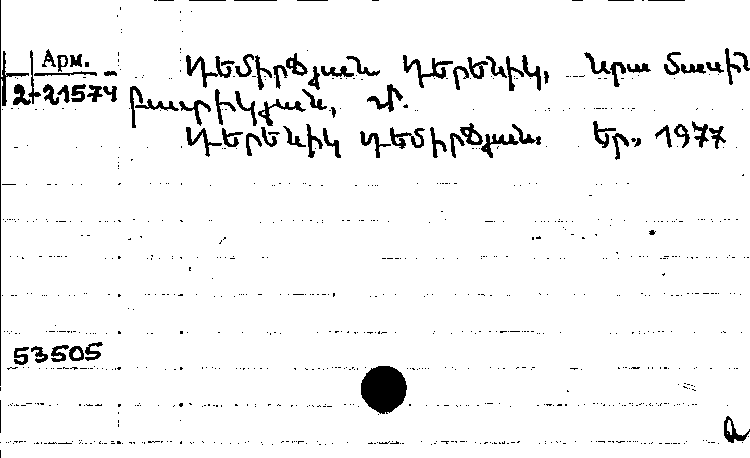 Арм.
2-21574
Դեմիրճյան Դերենիկ, նրա մասին
Բաբիկյան, Մ.
Դերենիկ Դեմիրճյան. Եր., 1977
53505
а